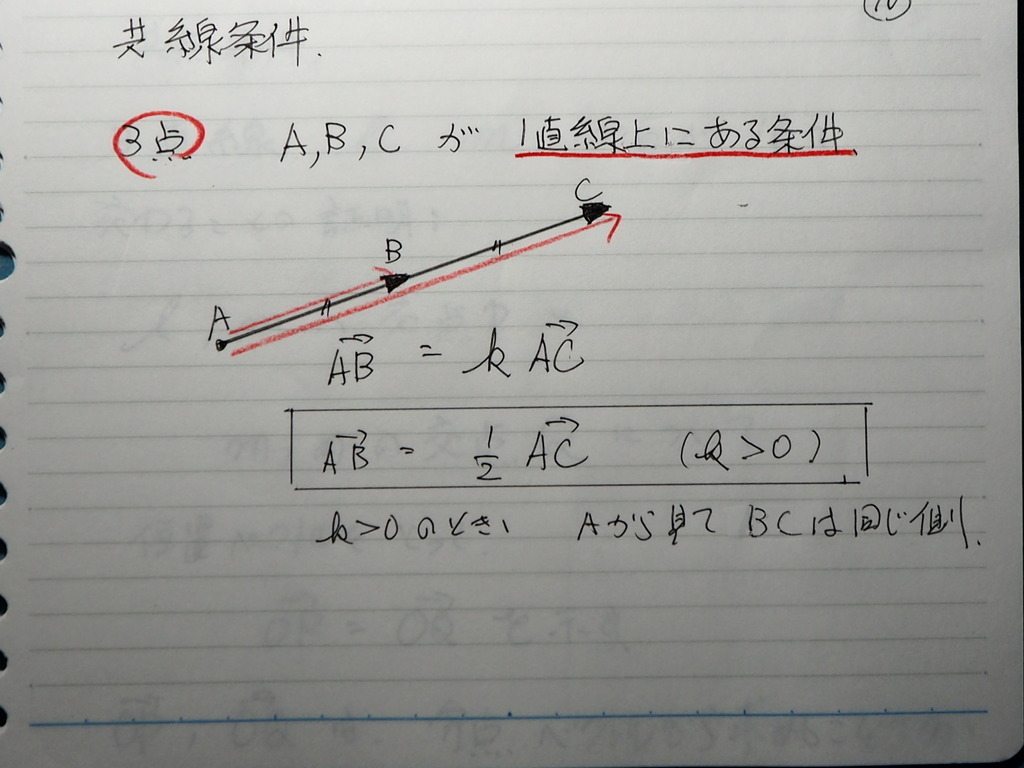 共線条件.
3点 A, B, C が 1直線上にある条件
C
B
A
→AB = k →AC
→AB = 1/2 →AC (k>0)
k>0 のとき、 Aから見て BCは同じ側.